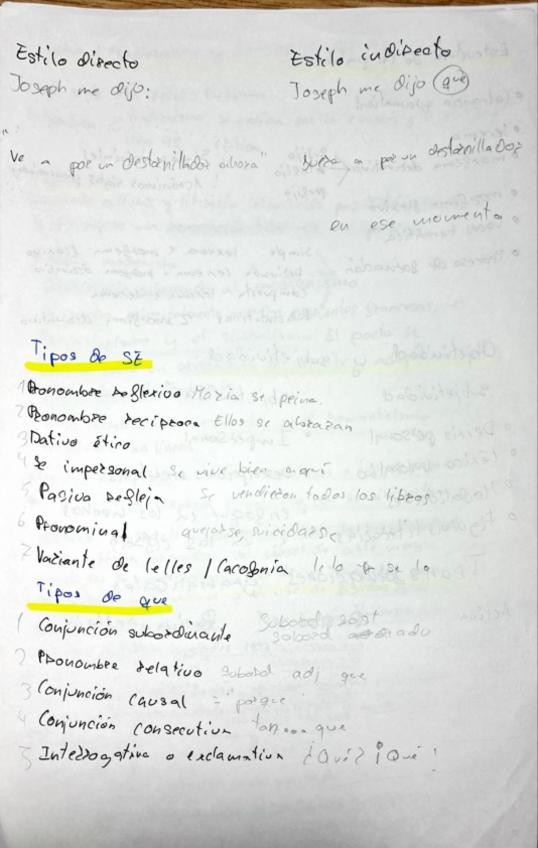 Estilo directo
Estilo indirecto
Joseph me dijo:
Joseph me dijo que
"Ve a por un destornillador ahora"
fuera a por un destornillador
en ese momento
Tipos de SE
1 Pronombre reflexivo María se peina.
2 Pronombre recíproco Ellos se abrazan
3 Dativo ético
4 Se impersonal Se vive bien aquí
5 Pasiva refleja Se vendieron todos los libros
6 Pronominal quejarse, suicidarse
7 Variante de le/les / Cacofonía le lo se lo
Tipos de que
1 Conjunción subordinante Subord sust
subord
2 Pronombre relativo subord adj que
3 Conjunción causal = "porque
4 Conjunción consecutiva tan... que
5 Interrogativo o exclamativa ¿Qué? ¡Qué!